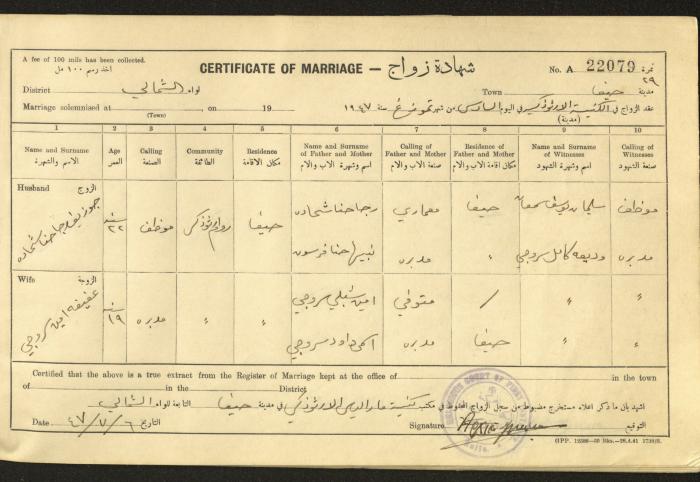 A fee of 100 mils has been collected.
اخذ رسم ١٠٠ مل
CERTIFICATE OF MARRIAGE — شهادة زواج
No. A 22079 نمرة
٢٩
District لواء الشمالي
Town مدينة حيفا
Marriage solemnised at on 19
(Town)
عقد الزواج في الكنيسة الارثوذكسية في اليوم السادس من شهر تموز سنة ١٩٤٧
(مدينة)
1 2 3 4 5 6 7 8 9 10
Name and Surname Age Calling Community Residence Name and Surname of Father and Mother Calling of Father and Mother Residence of Father and Mother Name and Surname of Witnesses Calling of Witnesses
الاسم والشهرة العمر الصنعة الطائفة مكان الاقامة اسم وشهرة الاب والام صنعة الاب والام مكان اقامة الاب والام اسم وشهرة الشهود صنعة الشهود
Husband الزوج
سنة ٢٢ موظف روم ارثوذكس حيفا رجا حنا شحاده معماري حيفا سليمان يوسف موظف
حنا مدبره " وديعه كامل سروجي مدبره
Wife الزوجة
عفيفه امين سروجي سنة ١٩ مدبره " " امين شبلي سروجي متوفي / " "
داود سروجي مدبره حيفا " "
Certified that the above is a true extract from the Register of Marriage kept at the office of in the town
of in the District
اشهد بان ما ذكر اعلاه مستخرج مضبوط من سجل الزواج المحفوظ في مكتب كنيسة مار الياس الارثوذكسي في مدينة حيفا التابعة للواء الشمالي
Date ٤٧/٧/٦ التاريخ
Signature التوقيع